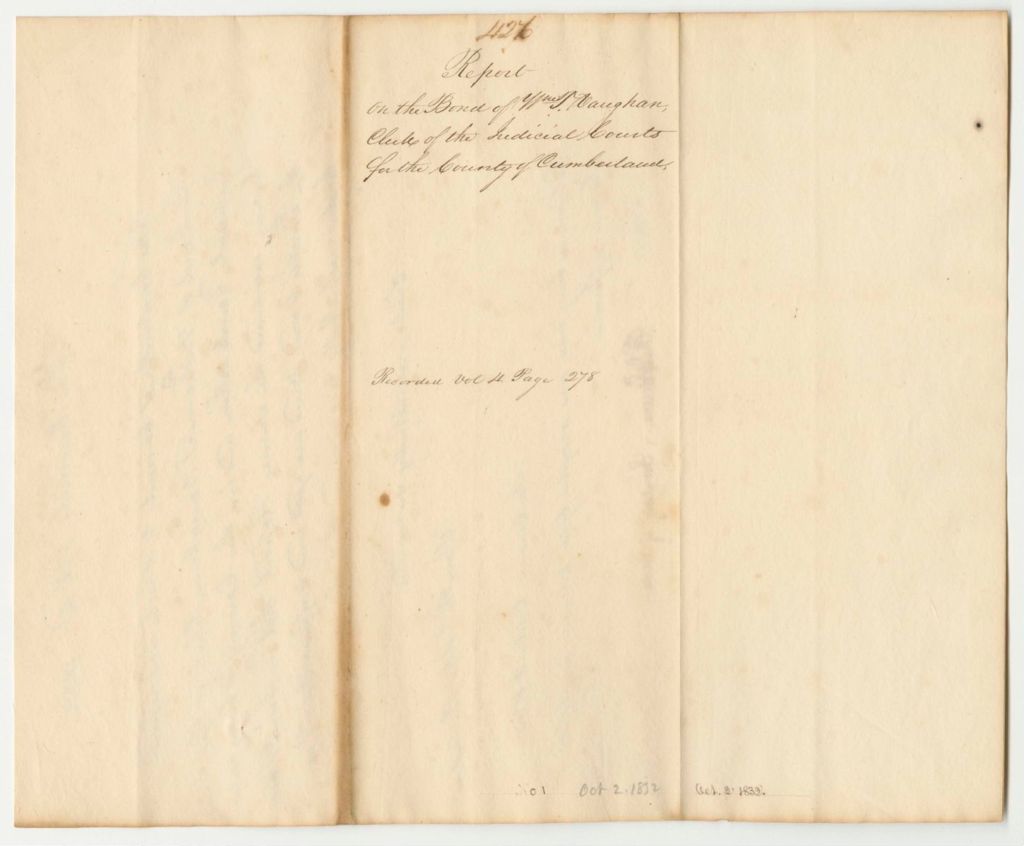 426
Report
on the Bond of Wm T. Vaughan,
Clerk of the Judicial Courts
for the County of Cumberland,
Recorded Vol 4 Page 278
No 1 Oct 2. 1832 Oct. 2. 1832.